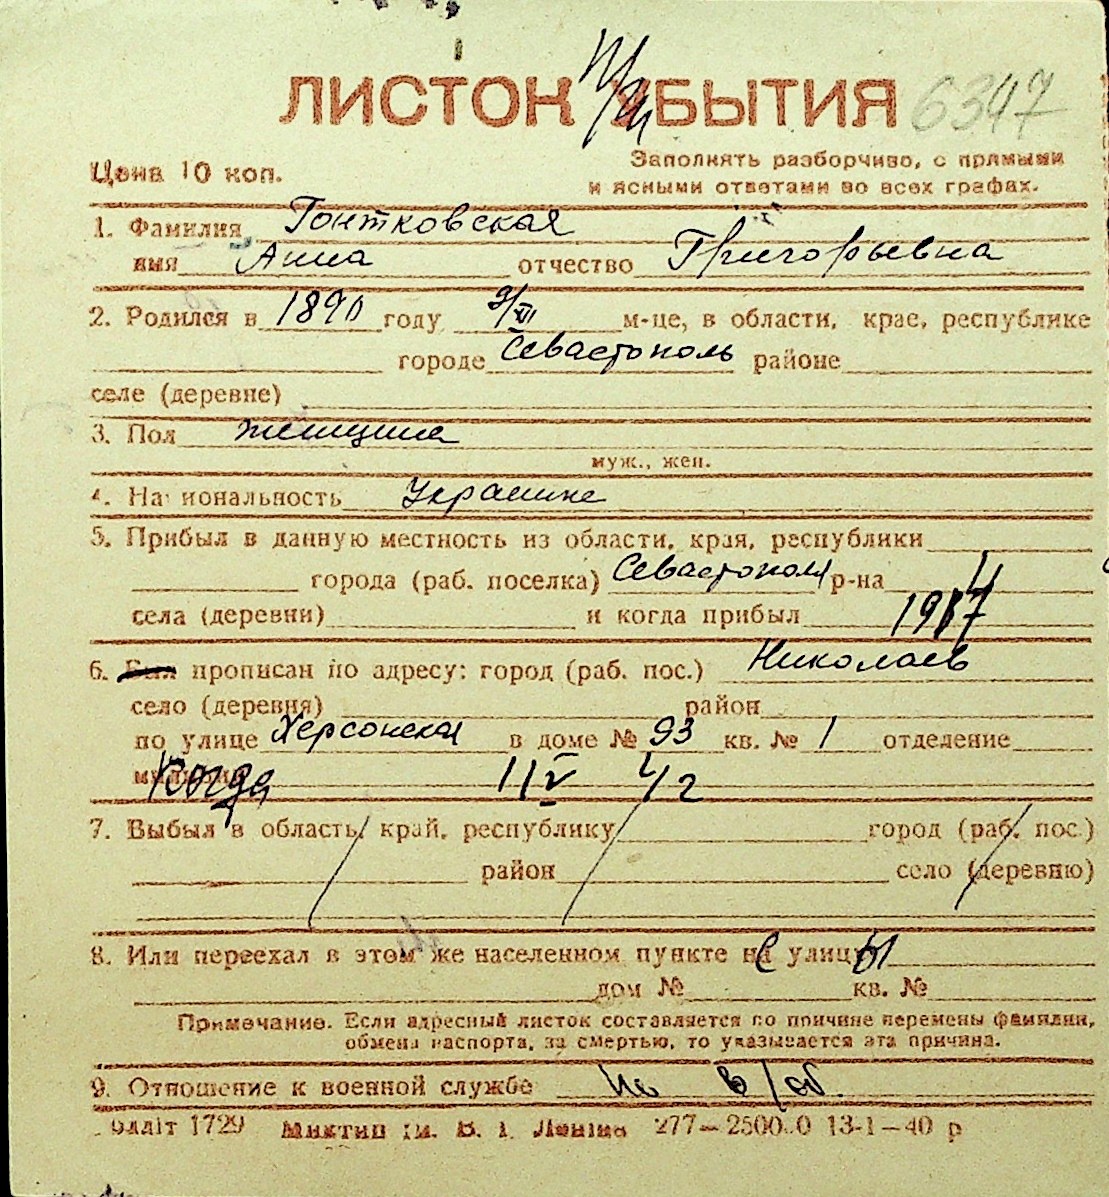 ЛИСТОК УБЫТИЯ 6347
Цена 10 коп.
Заполнять разборчиво, с прямыми
и ясными ответами во всех графах.
1. Фамилия Гонтковская
имя Анна отчество Григорьевна
2. Родился в 1890 году 9/XII м-це, в области, крае, республике
городе Севастополь районе
селе (деревне)
3. Пол женщина
муж., жен.
4. Национальность Украинка
5. Прибыл в данную местность из области, края, республики
города (раб. поселка) Севастополя р-на
села (деревни) и когда прибыл 1917
6. Был прописан по адресу: город (раб. пос.) Николаев
село (деревня) район
по улице Херсонская в доме № 93 кв. № 1 отделение
милиции Когда 11 V 42
7. Выбыл в область, край, республику город (раб. пос.)
район село (деревню)
8. Или переехал в этом же населенном пункте с улицы
дом № кв. №
Примечание. Если адресный листок составляется по причине перемены фамилии,
обмена паспорта, за смертью, то указывается эта причина.
9. Отношение к военной службе не в/об.
1729 им. В. І. Леніна 277— 13-1—40 р